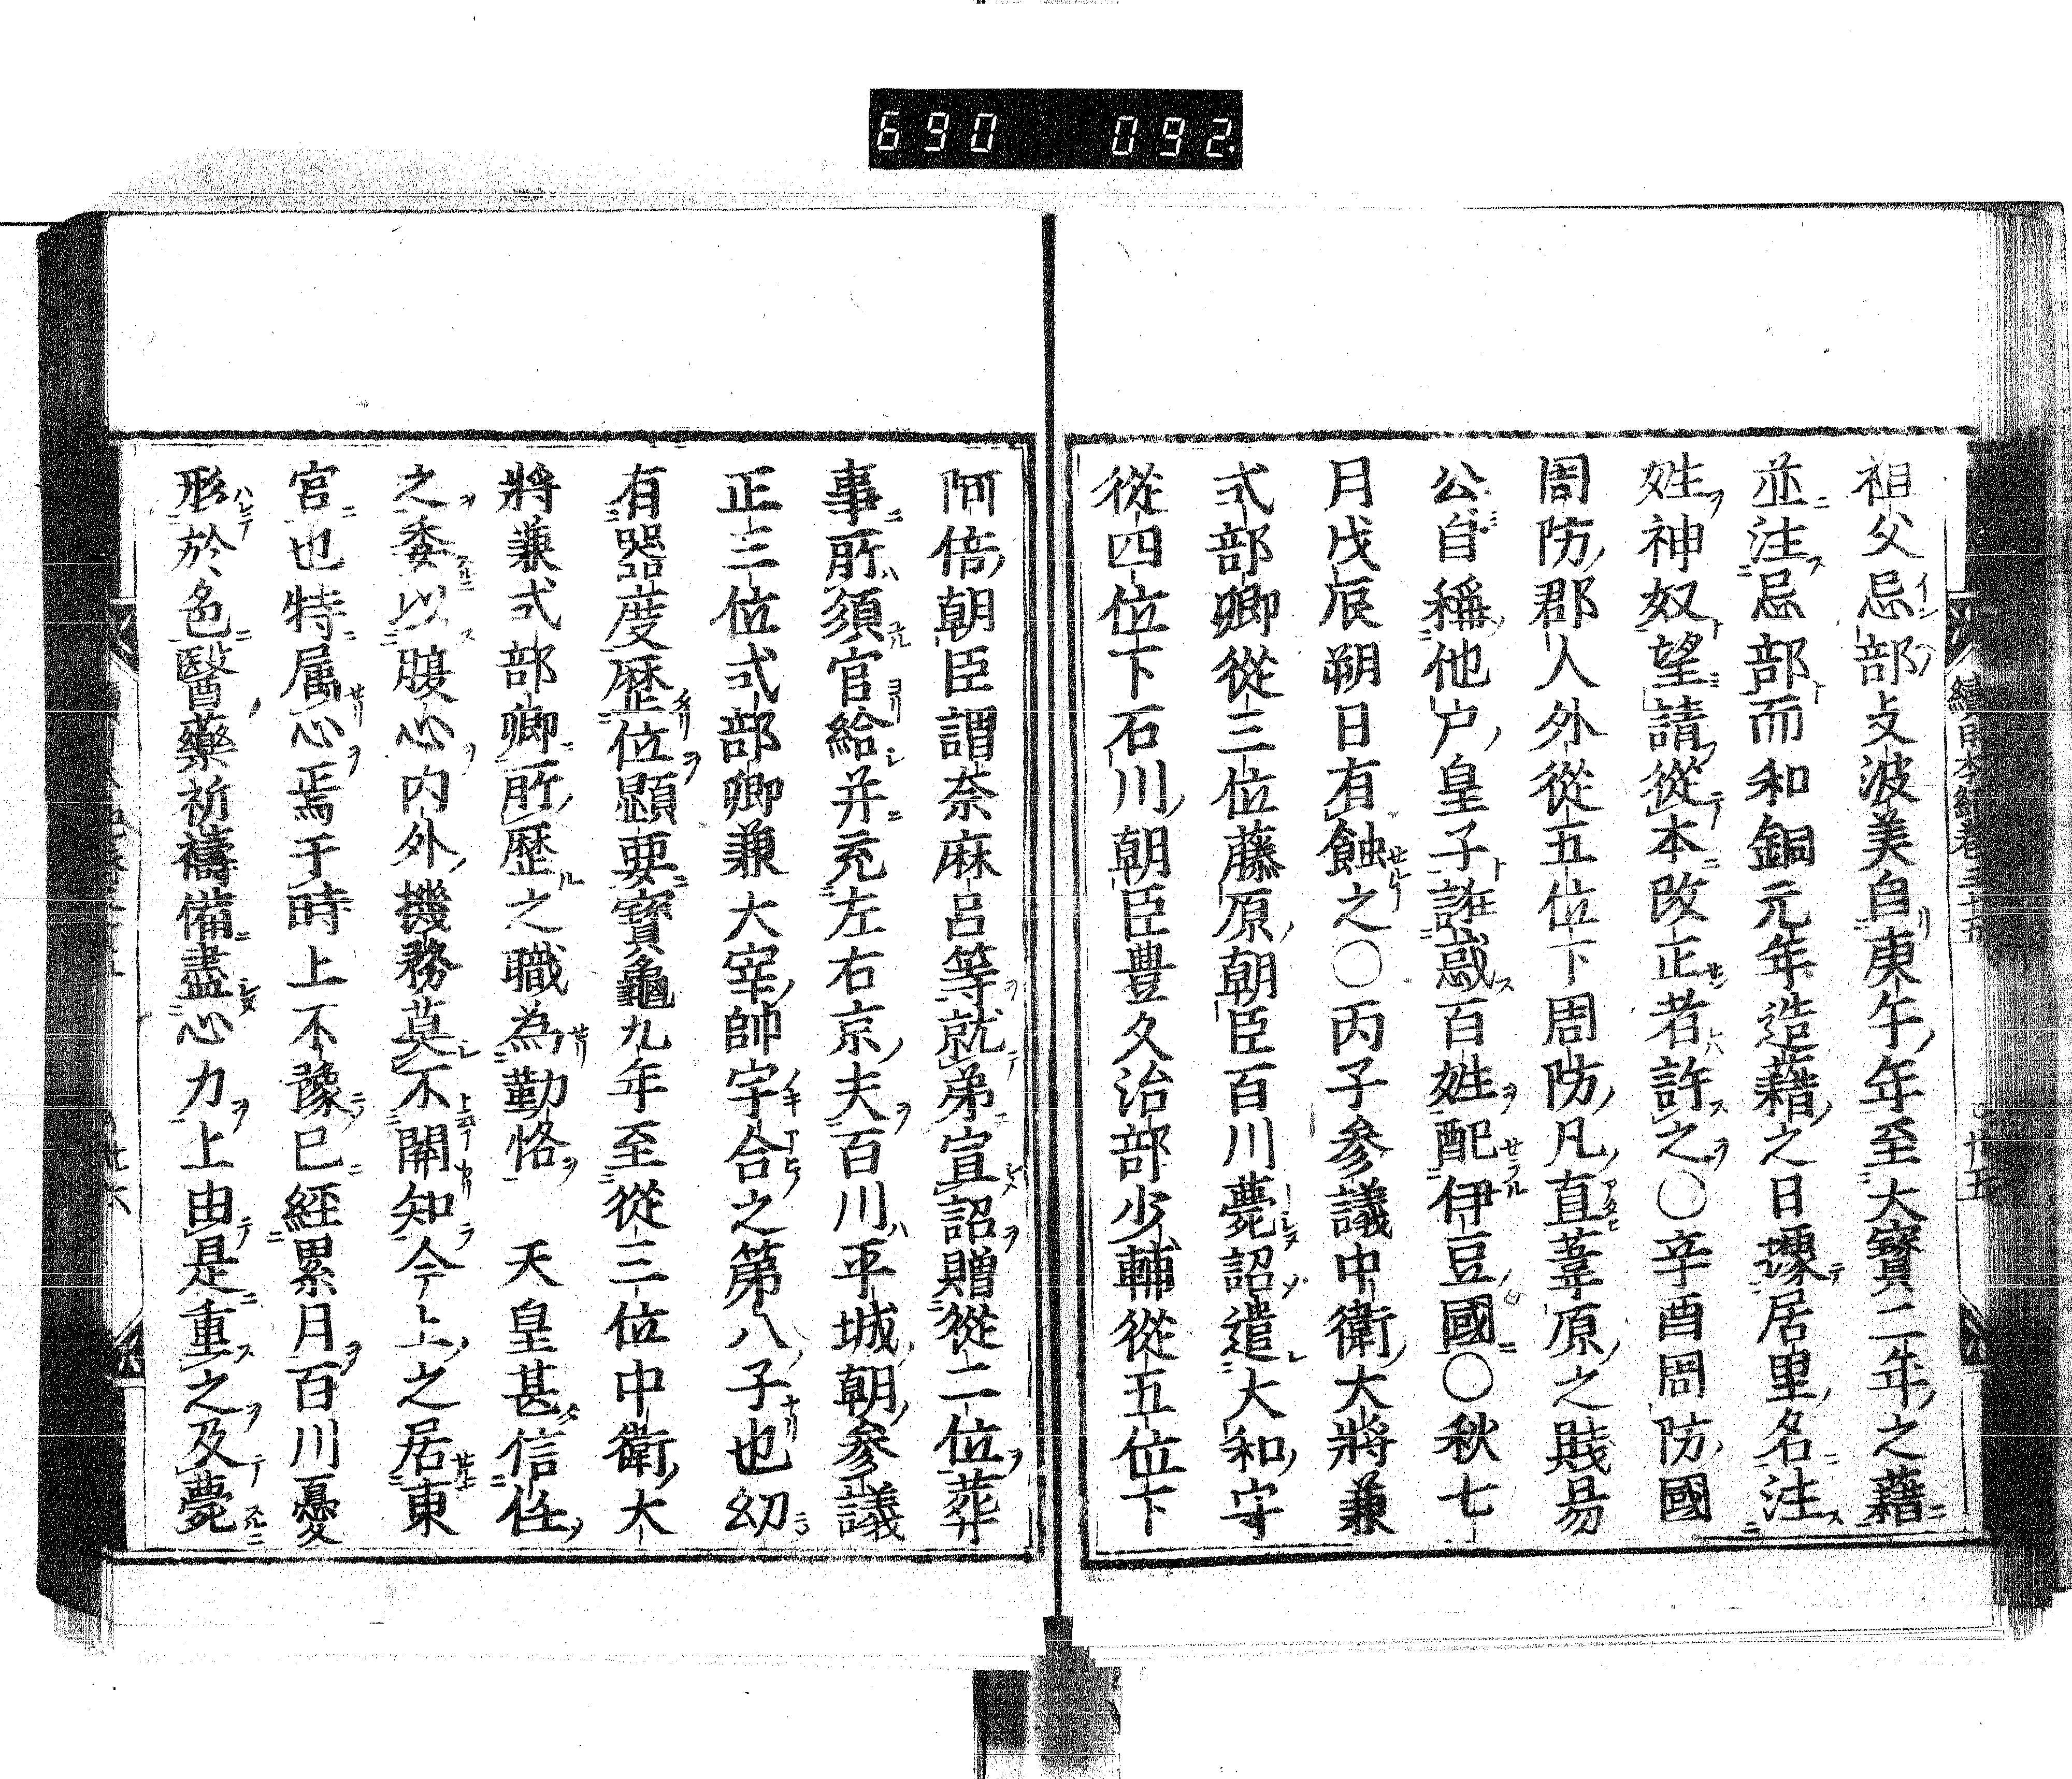 690 092.
祖父忌部支波美自庚午年至大寶二年之藉
並注忌部而和銅元年造藉之日據居里名注
姓神奴望請從本改正者許之〇辛酉周防國
周防郡人外從五位下周防凡直葦原之賤易
公自稱他户皇子誑惑百姓配伊豆國〇秋七
月戊辰朔日有蝕之〇丙子參議中衛大將兼
式部卿從三位藤原朝臣百川薨詔遣大和守
從四位下石川朝臣豊久治部少輔從五位下
阿倍朝臣謂奈麻呂等就弟宣詔贈從二位葬
事所須官給并充左右京夫百川平城朝參議
正三位式部卿兼大宰帥宇合之第八子也幼
有器度歴位顯要寶龜九年至從三位中衛大
將兼式部卿所歴之職為勤恪 天皇甚信任
之委以腹心内外機務莫不關知今上之居東
宮也特属心焉于時上不豫已經累月百川憂
形於色醫藥祈禱備盡心力上由是重之及薨